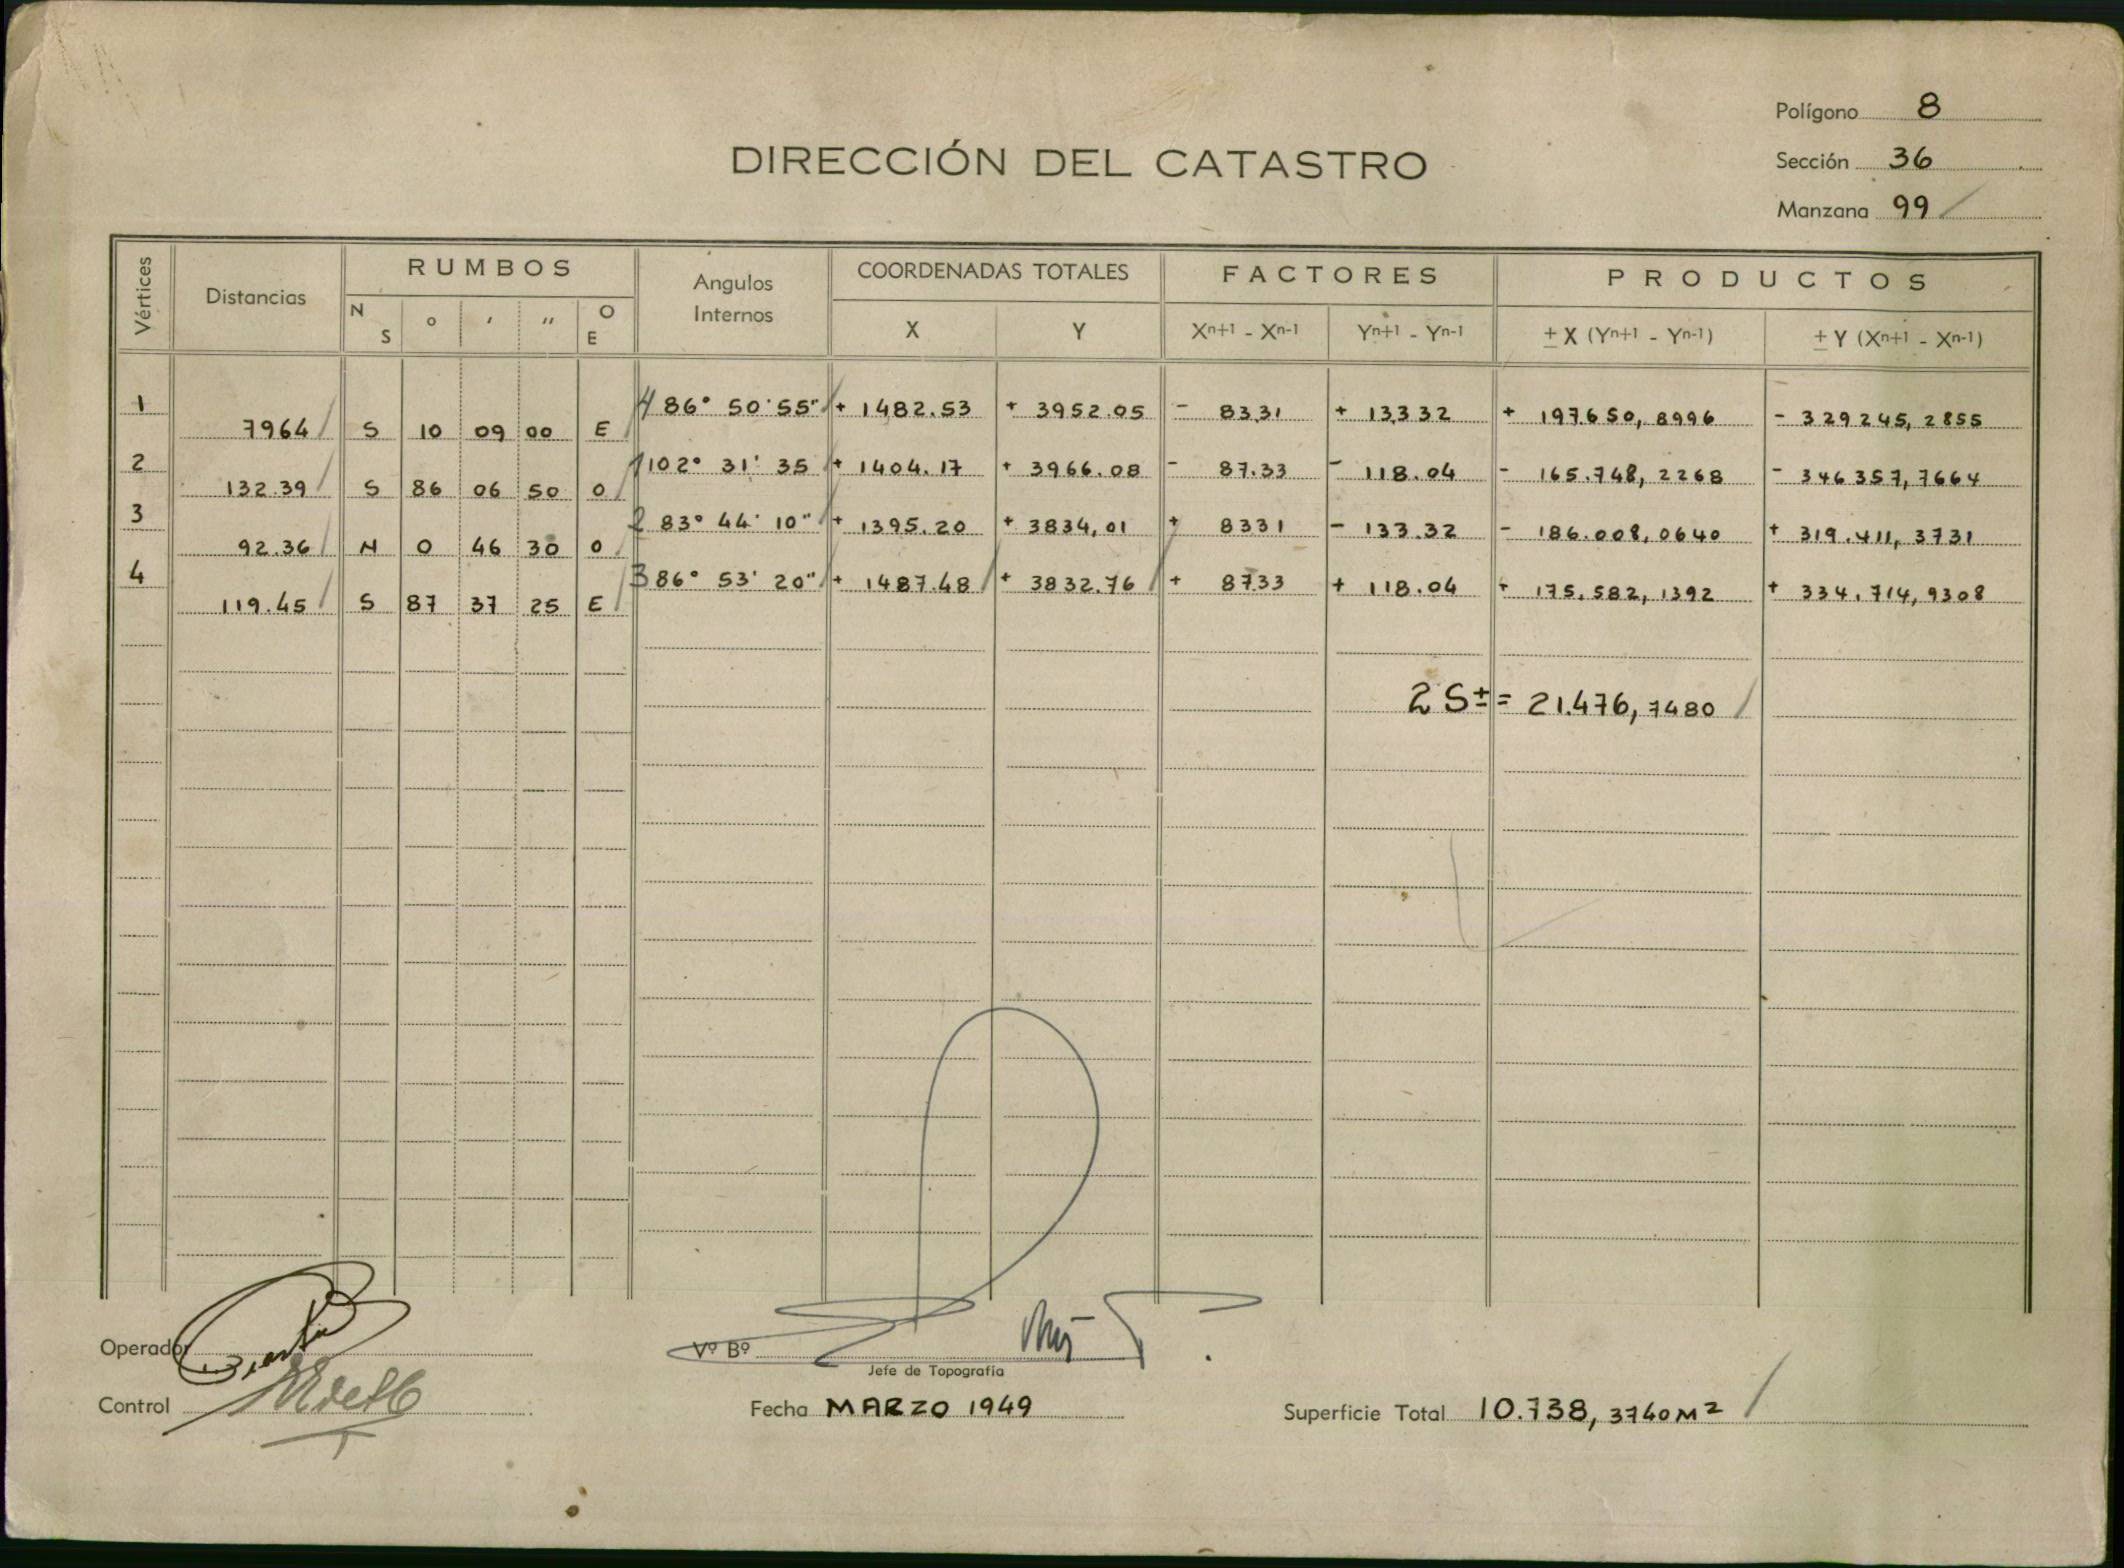 Polígono 8
DIRECCIÓN DEL CATASTRO
Sección 36
Manzana 99
Vértices Distancias RUMBOS Angulos Internos COORDENADAS TOTALES FACTORES PRODUCTOS
N S ° ' '' O E X Y Xn+1 - Xn-1 Yn+1 - Yn-1 ± X (Yn+1 - Yn-1) ± Y (Xn+1 - Xn-1)
1 4 86° 50' 55" + 1482.53 + 3952.05 - 83.31 + 133.32 + 197.650, 8996 - 329245, 2855
7964 S 10 09 00 E
2 1 102° 31' 35 + 1404.17 + 3966.08 - 87.33 - 118.04 - 165.748, 2268 - 346357, 7664
132.39 S 86 06 50 O
3 2 83° 44' 10" + 1395.20 + 3834,01 + 8331 - 133.32 - 186.008, 0640 + 319.411, 3731
92.36 N 0 46 30 O
4 3 86° 53' 20" + 1487.48 + 3832.76 + 8733 + 118.04 + 175.582, 1392 + 334.714, 9308
119.45 S 87 37 25 E
2 S ± = 21.476, 7480
Operador
Vº Bº
Jefe de Topografía
Control
Fecha MARZO 1949
Superficie Total 10.738, 3740 M2